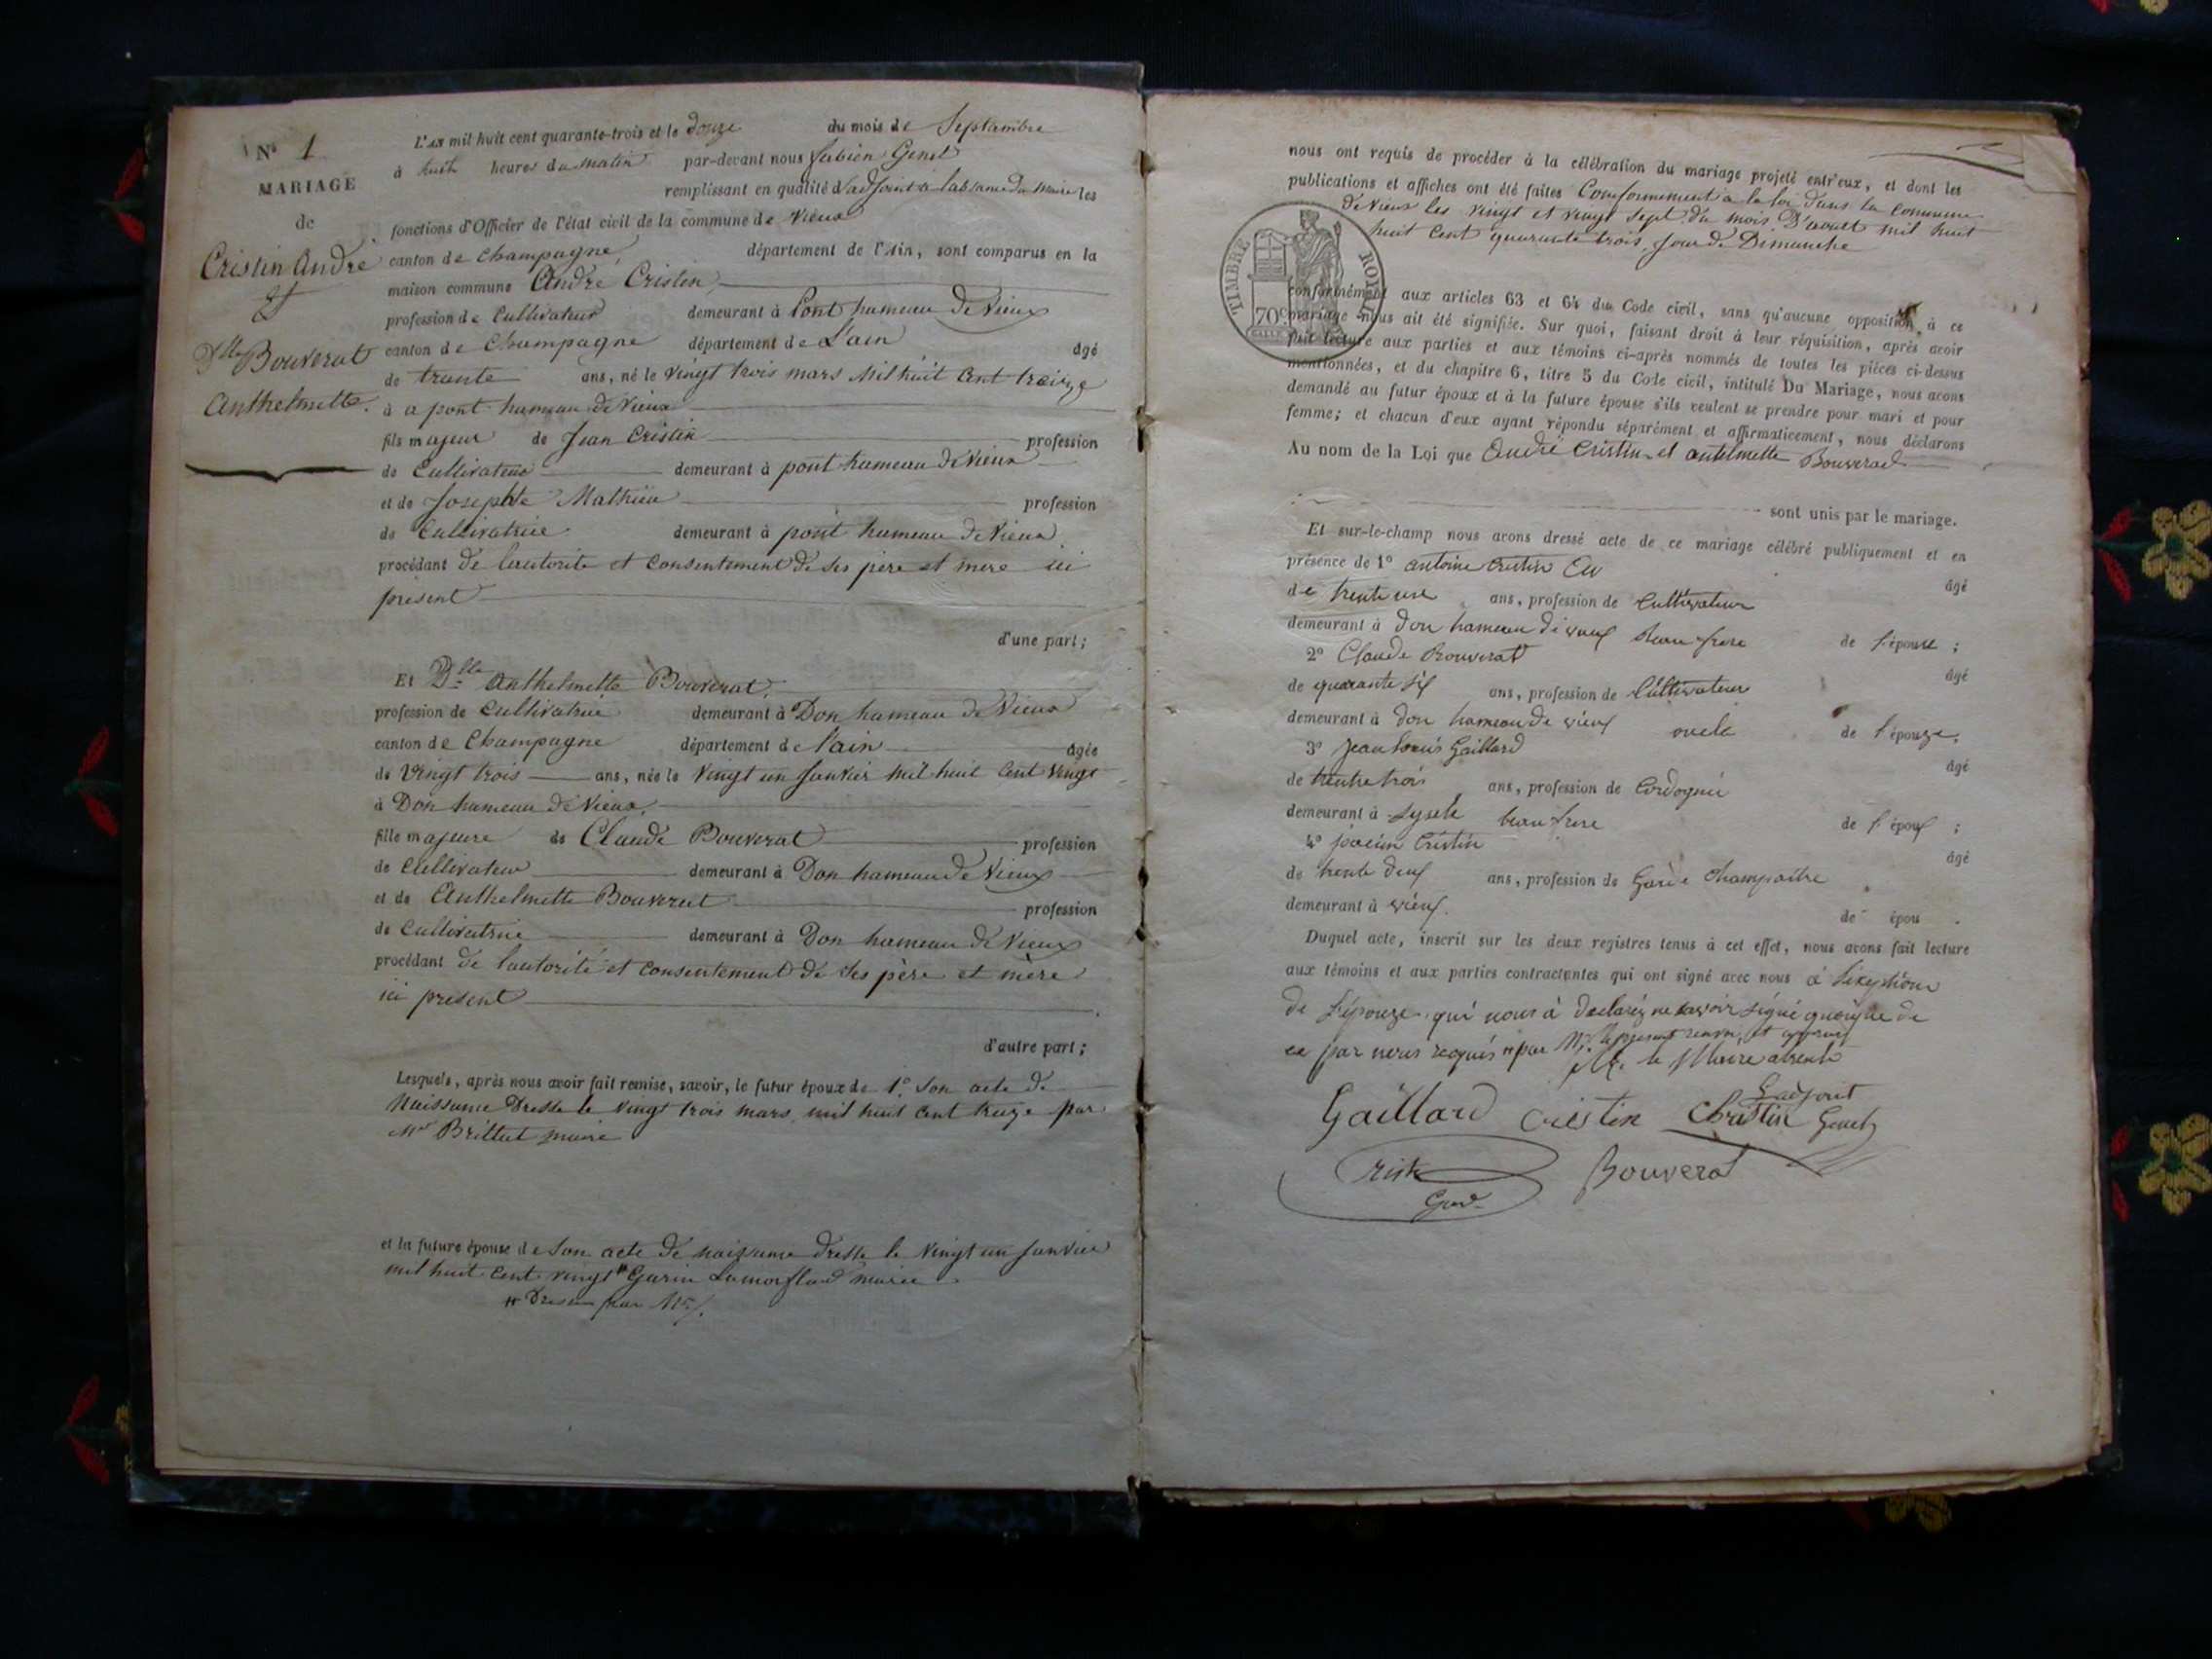 N° 1
MARIAGE
de
Cristin André
et
Dlle Bouverat
Anthelmette.
L'an mil huit cent quarante-trois et le douze du mois de Septembre
à huit heures du matin par-devant nous fabien Genet
remplissant en qualité d'adjoint à labsance du maire les
fonctions d'Officier de l'état civil de la commune de Vieux
canton de Champagne, département de l'Ain, sont comparus en la
maison commune André Cristin
profession de Cultivateur demeurant à Pont hameau de Vieux
canton de Champagne département de L'ain âgé
de trente ans, né le vingt trois mars Mil huit Cent treize
à a pont hameau de Vieux
fils majeur de Jean Cristin profession
de Cultivateur demeurant à pont hameau de Vieux
et de Josephte Mathieu profession
de Cultivatrice demeurant à pont hameau de Vieux
procédant de lautorité et Consentement de ses père et mere ici
présent
d'une part;
Et Dlle Anthelmette Bouverat,
profession de Cultivatrice demeurant à Don hameau de Vieux
canton de Champagne département de l'ain âgée
de Vingt trois ans, née le Vingt un Janvier mil huit Cent vingt
à Don hameau de Vieux
fille majeure de Claude Bouverat profession
de Cultivateur demeurant à Don hameau de Vieux
et de Anthelmette Bouverat profession
de Cultivatrice demeurant à Don hameau de Vieux
procédant de lautorité et Consentement de ses père et mère
ici present
d'autre part;
Lesquels, après nous avoir fait remise, savoir, le futur époux de 1° Son acte de
Naissance Dressé le vingt trois mars mil huit Cent treize par
Mr Brillat maire
et la future épouse de Son acte de naissance dressé le vingt un Janvier
mil huit Cent vingt # Maire
# Dressé par Mr
nous ont requis de procéder à la célébration du mariage projeté entr'eux, et dont les
publications et affiches ont été faites Conformement à la loi dans la Commune
de Vieux les vingt et vingt sept du mois D'aoust mil huit
huit Cent quarante trois, Jour de Dimanche
TIMBRE ROYAL
70c
conformément aux articles 63 et 64 du Code civil, sans qu'aucune opposition à ce
mariage nous ait été signifiée. Sur quoi, faisant droit à leur réquisition, après avoir
fait lecture aux parties et aux témoins ci-après nommés de toutes les pièces ci-dessus
mentionnées, et du chapitre 6, titre 5 du Code civil, intitulé Du Mariage, nous avons
demandé au futur époux et à la future épouse s'ils veulent se prendre pour mari et pour
femme; et chacun d'eux ayant répondu séparément et affirmativement, nous déclarons
Au nom de la Loi que André Cristin et antelmette Bouverad
sont unis par le mariage.
Et sur-le-champ nous avons dressé acte de ce mariage célébré publiquement et en
présence de 1° antoine Cristin âgé
de trente une ans, profession de Cultivateur
demeurant à don hameau de vieux Beau frere de l'épouse ;
2° Claude Bouverat âgé
de quarante six ans, profession de Cultivateur
demeurant à don hameau de vieux oncle de l'épouze,
3° Jean Louis Gaillard âgé
de trentre trois ans, profession de Cordognié
demeurant à beau frere de l'époux ;
4° Cristin âgé
de trente deux ans, profession de Garde Champaitre
demeurant à vieux. de épou .
Duquel acte, inscrit sur les deux registres tenus à cet effet, nous avons fait lecture
aux témoins et aux parties contractantes qui ont signé avec nous à
de l'épouze qui nous à declarez ne savoir signé quoique de
ce par nous requis
le Maire absent
L'adjoint
Gaillard Cristin Christin Genet
Cristin Bouverat
Gard